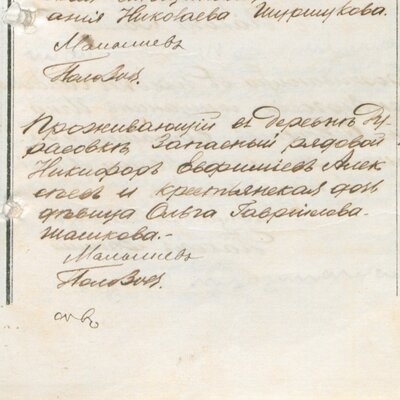 анія Николаева Шуршукова.
Малышев
Половов.
Проживающій въ деревнѣ Ду
расовкѣ Запасный рядовой
Никифоръ Евфиміевъ Алек
сѣевъ и крестьянская дочь
дѣвица Ольга Гаврилова
Малышев